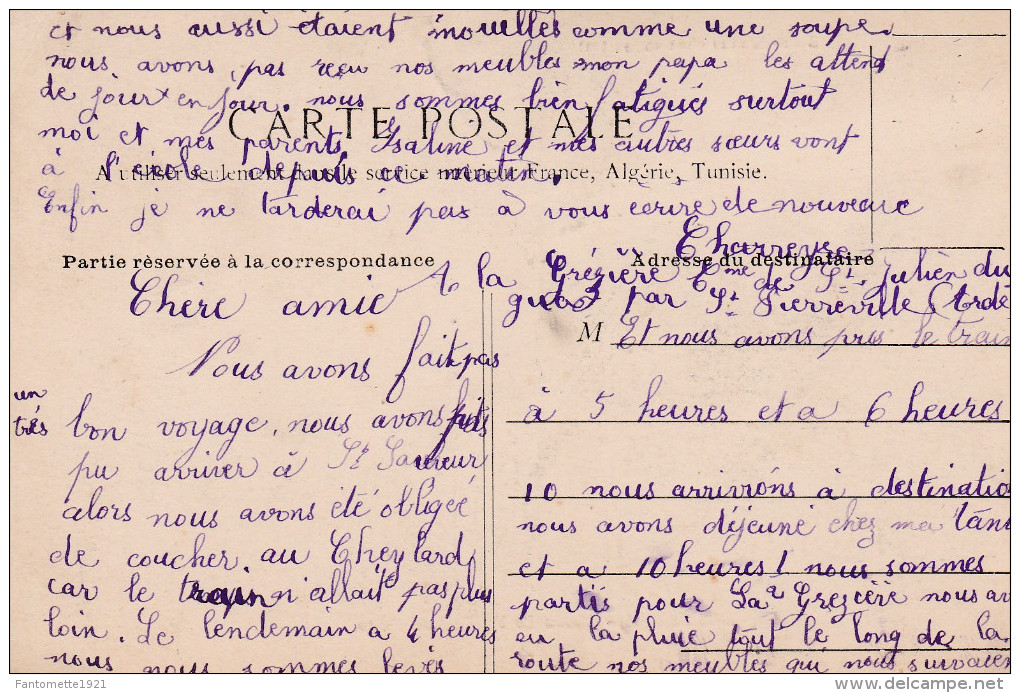 et nous aussi étaient mouillés comme une soupe.
nous avons pas reçu nos meubles mon papa les attend
de jour en jour. nous sommes bien fatigués surtout
CARTE POSTALE
moi et mes parents. Isaline et mes autres sœurs vont
à l'école depuis ce matin.
A utiliser seulement dans le service intérieur France, Algérie, Tunisie.
Enfin je ne tarderai pas à vous écrire de nouveau
Charreyre
Partie rèservée à la correspondance
Adresse du destinataire
A la Grézière Cme de St Julien du
gua par St Pierreville (Ardè
Chère amie
M
Nous avons fait pas
un
très
bon voyage, nous avons pas
pu arriver à St Sauveur
alors nous avons été obligée
de coucher au Cheylard
car le train n'allait pas plus
loin. Le lendemain a 4 heures
nous nous sommes levés
Et nous avons pris le train
à 5 heures et a 6 heures
10 nous arrivions à destinatio
nous avons déjeuné chez ma tan
et a 10 heures 1 nous sommes
partis pour La Grezière nous av
eu la pluie tout le long de la
route nos meubles qui nous suivaien
© Fantomette1921
delcampe.net